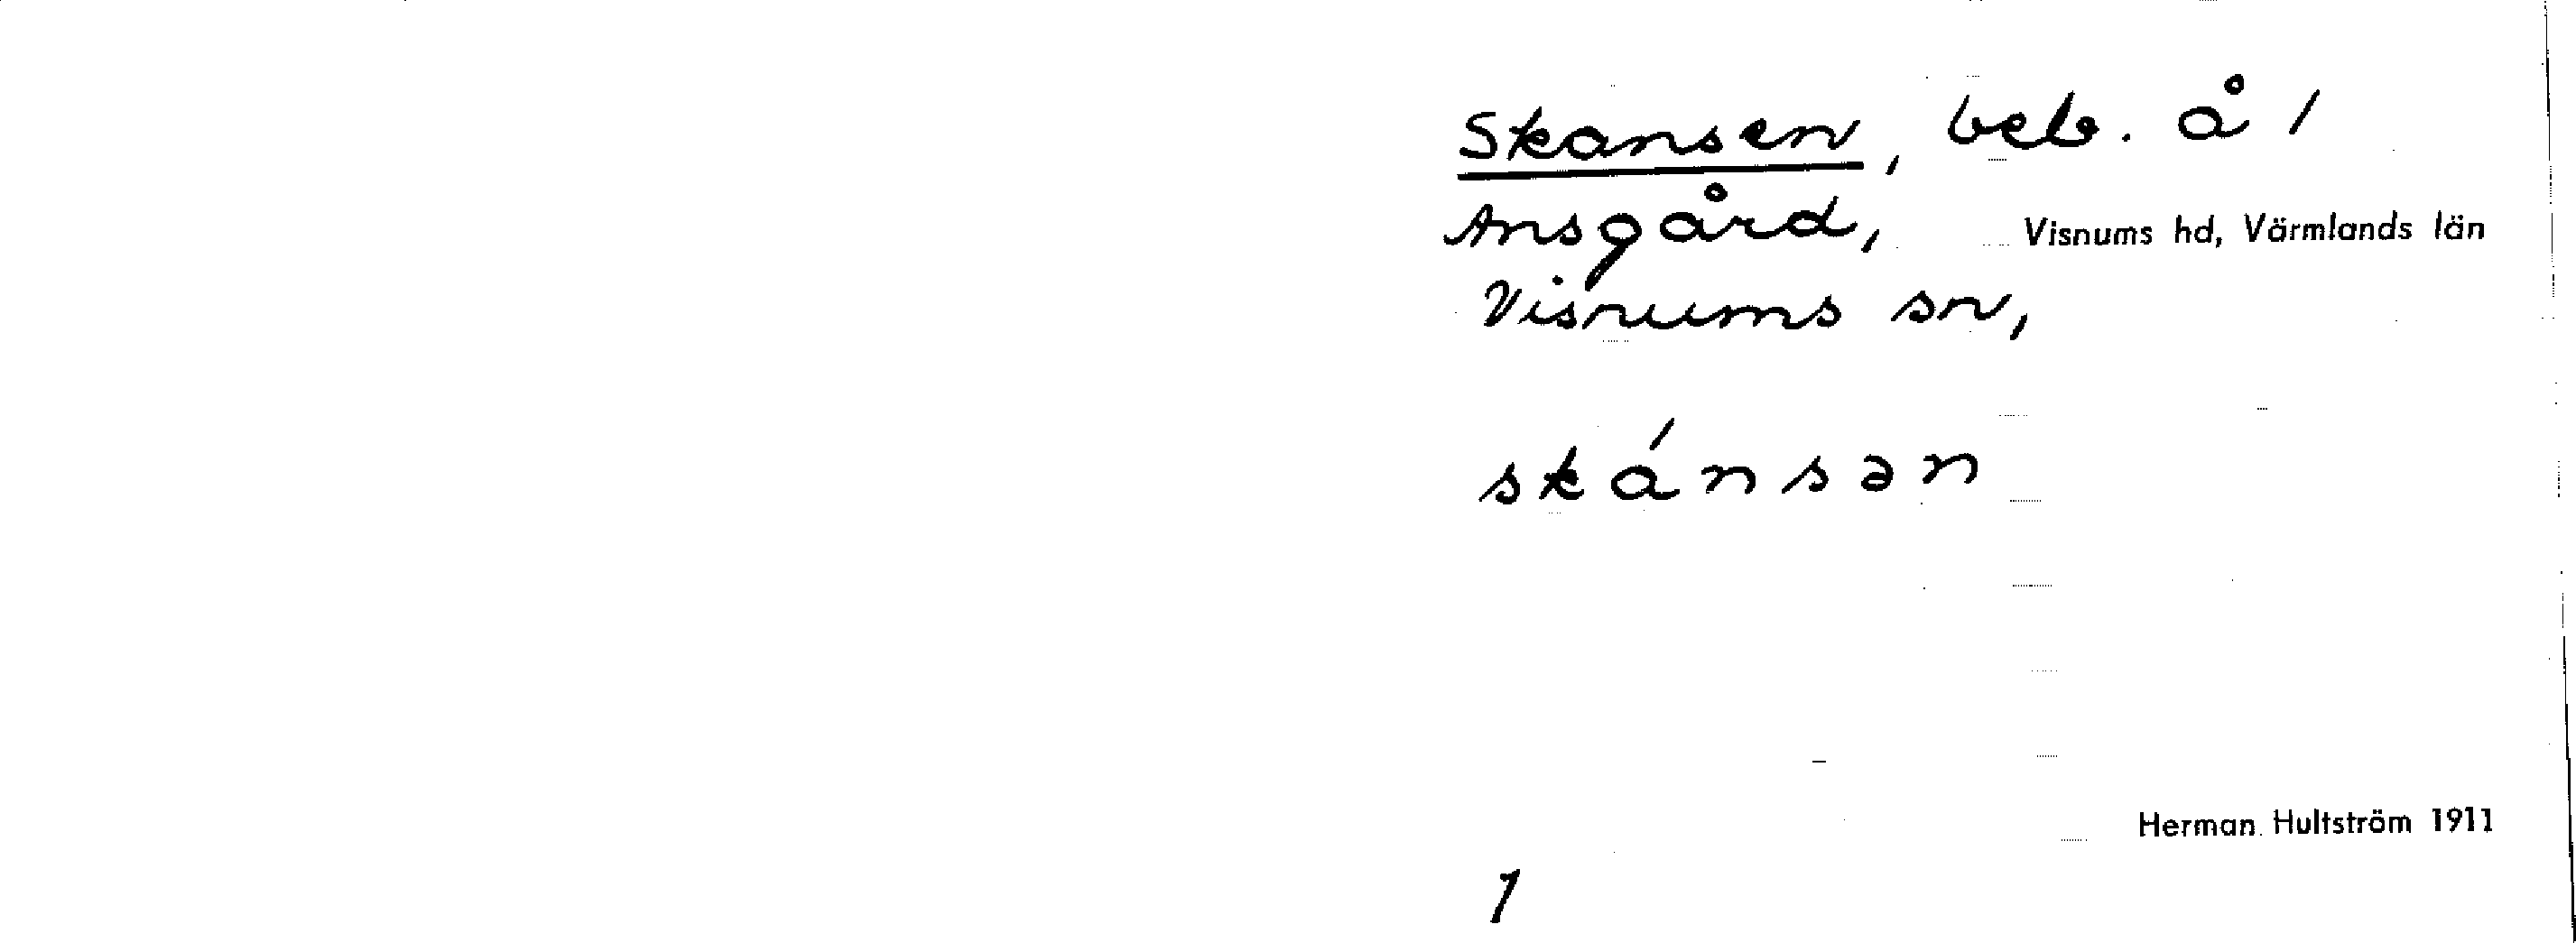 Skansen, beb. å /
Ansgård, Visnums hd, Värmlands län
Visnums sn,
skánsən
Herman Hultström 1911
1